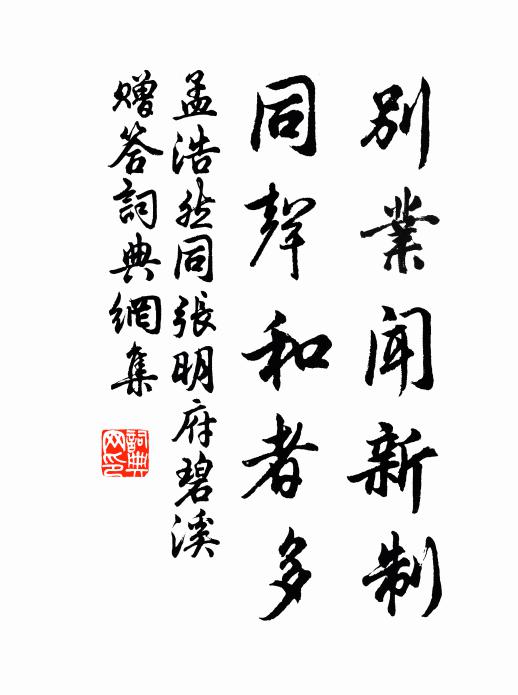 別業聞新制
同聲和者多
孟浩然同張明府碧溪
贈答詞典網集
詞典
网印